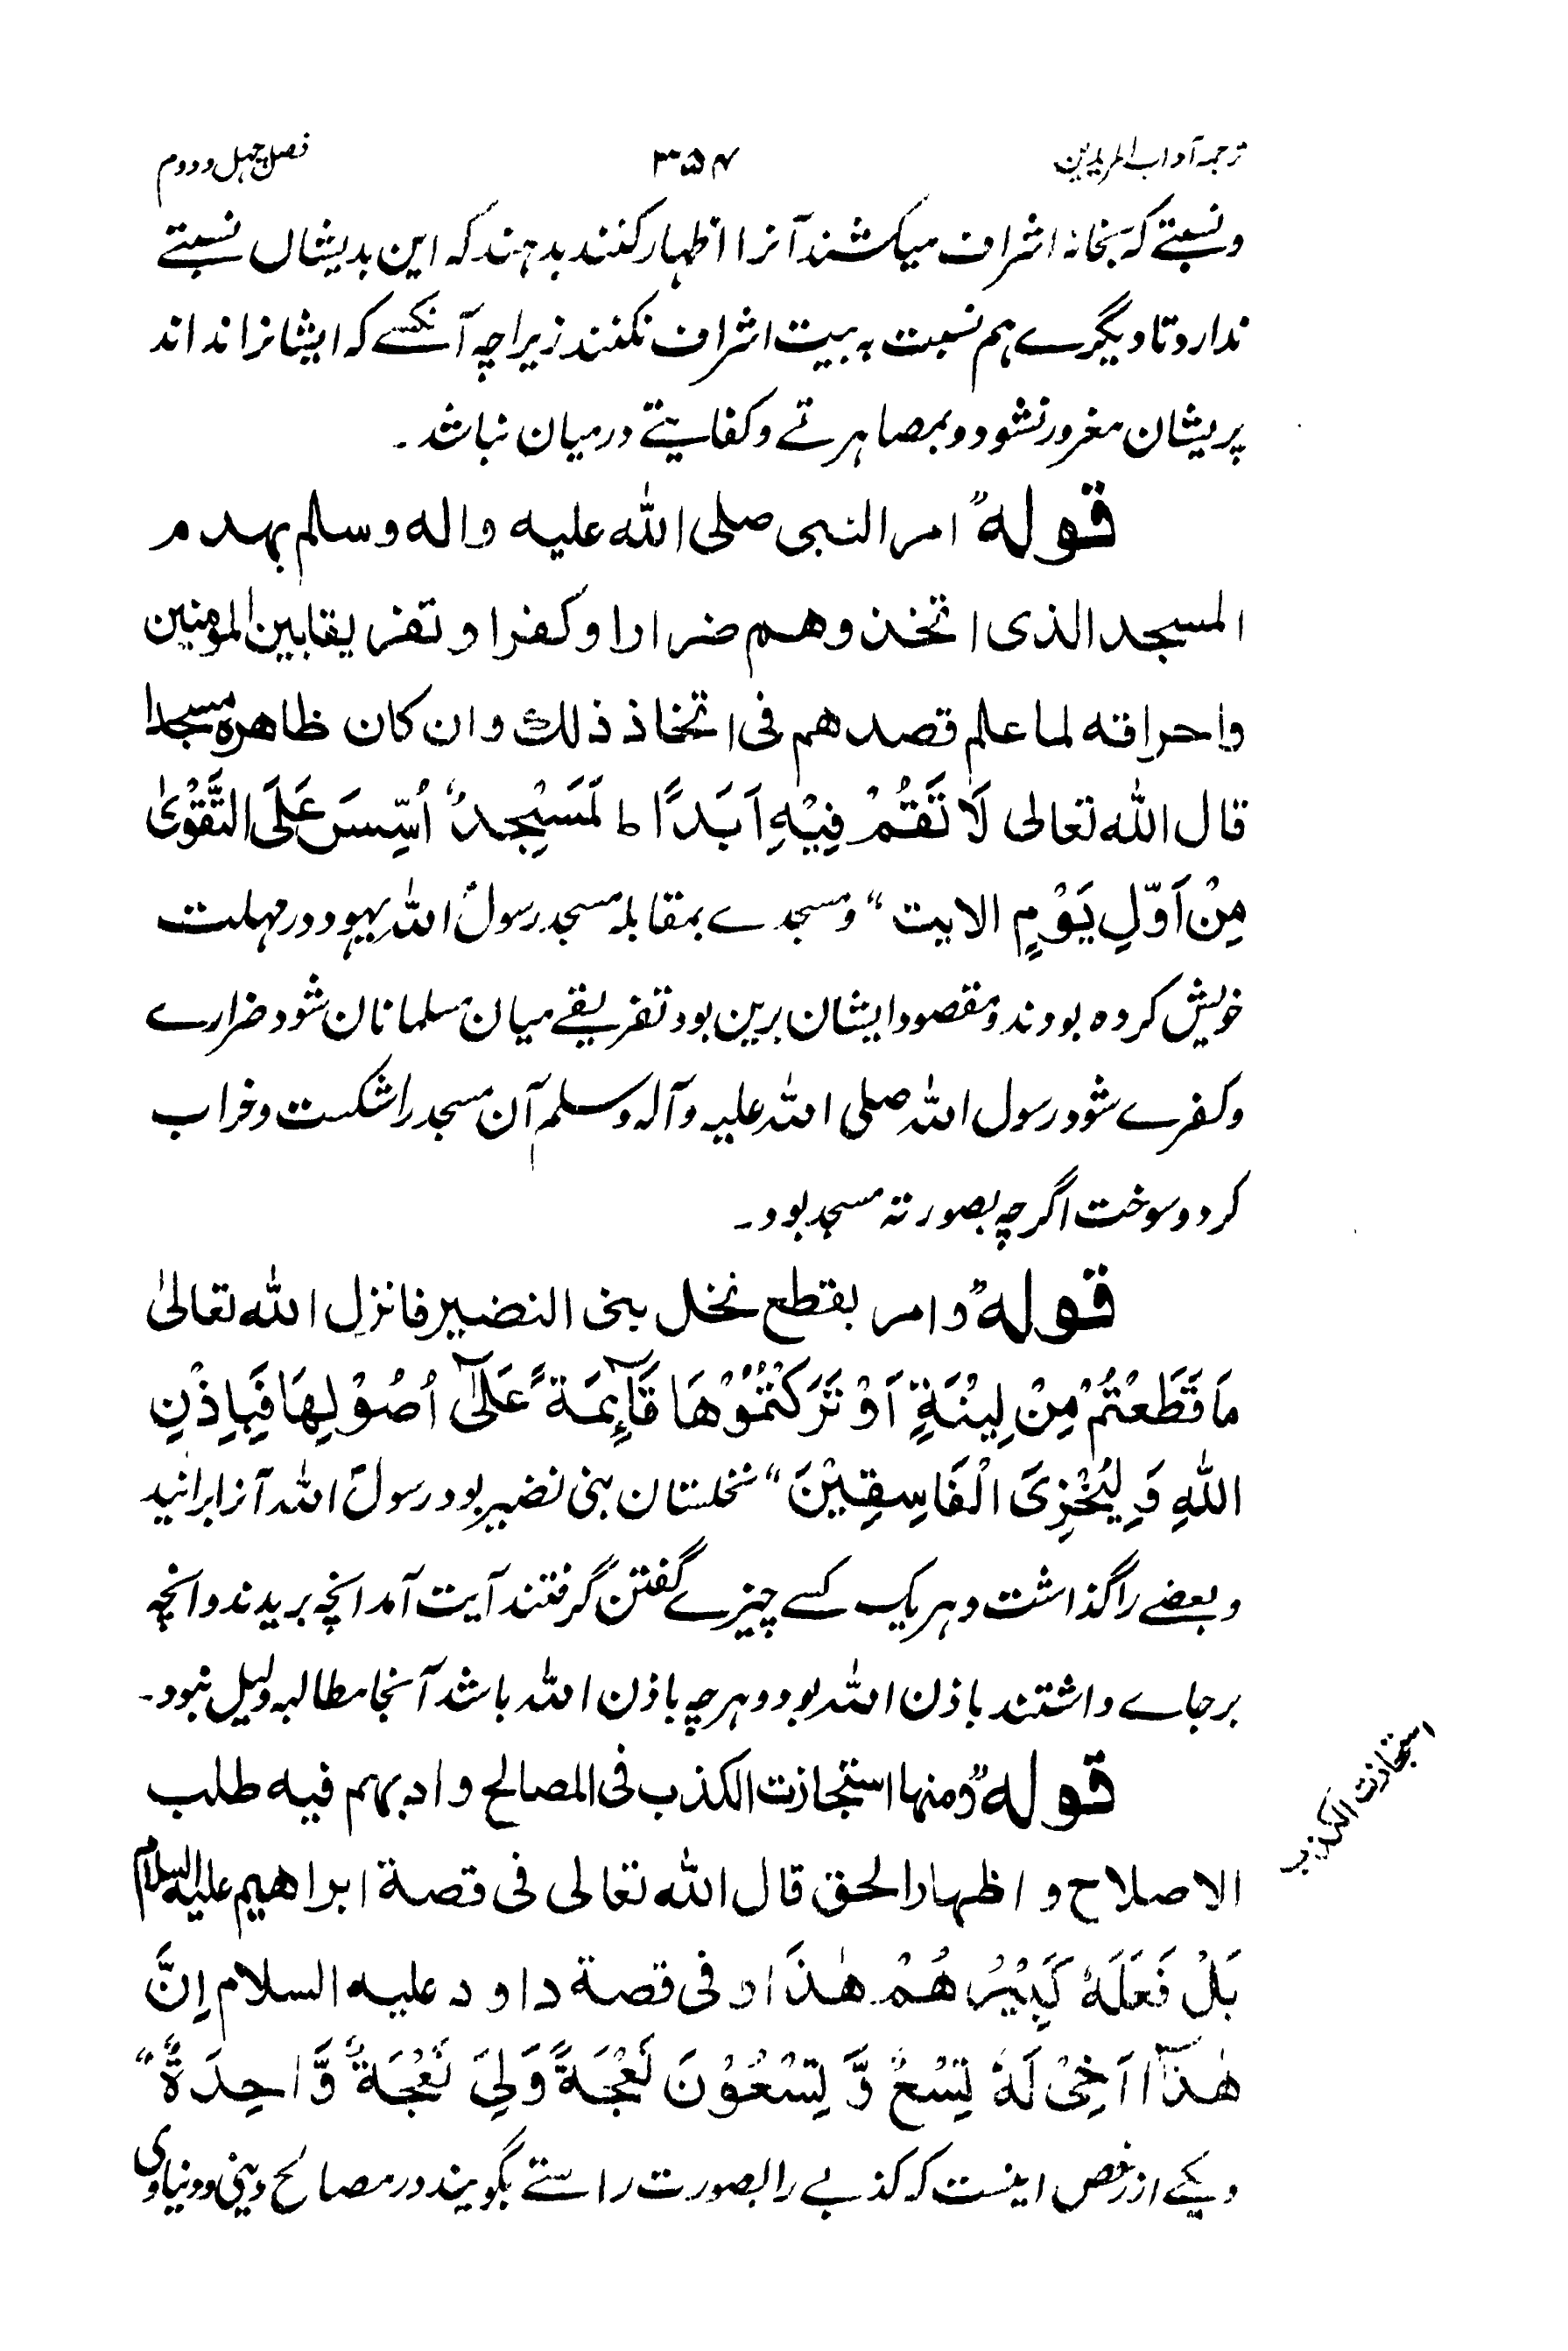 ترجمہ آداب المریدین
۳۵۴
فصل چہل و دوم
و نسبتے کہ بخانہ اشراف میکشند آنرا اظہار کنند بدہند کہ این بدیشاں نسبتے
ندارد تا دیگرے ہم نسبت بہ بیت اشراف نکنند زیراچہ آنکسے کہ ایشانرا نداند
پریشان مغرور نشود و بمصاہرتے و کفایتے درمیان نباشد ۔
قولہ "امر النبی صلی اللہ علیہ والہ وسلم بہدم
المسجد الذی اتخذوھم ضرارا وکفرا وتفریقا بین المومنین
واحراقہ لما علم قصدھم فی اتخاذ ذلک وان کان ظاھرہ مسجدا
قال اللہ تعالی لَا تَقُمْ فِیْہِ اَبَدًا ط لَمَسْجِدٌ اُسِّسَ عَلَی التَّقْوٰی
مِنْ اَوَّلِ یَوْمٍ الایت" و مسجدے بمقابلہ مسجد رسولؐ اللہ یہود در مہلت
خویش کردہ بودند و مقصود ایشان برین بود تفریقے میان مسلمانان شود ضرارے
و کفرے شود رسول اللہ صلی اللہ علیہ وآلہ وسلم آن مسجد را شکست و خراب
کرد و سوخت اگرچہ بصورتہ مسجد بود ۔
قولہ "وامر بقطع نخل بنی النضیر فانزل اللہ تعالیٰ
مَا قَطَعْتُمْ مِنْ لِیْنَةٍ اَوْ تَرَکْتُمُوْھَا قَآئِمَةً عَلٰٓی اُصُوْلِھَا فَبِاِذْنِ
اللہِ وَ لِیُخْزِیَ الْفَاسِقِیْنَ" نخلستان بنی نضیر بود رسولؐ اللہ آنرا برانید
و بعضے را گذاشت و ہر یک کسے چیزے گفتن گرفتند آیت آمد انچہ بریدند و انچہ
برجاے داشتند باذن اللہ بود و ہرچہ باذن اللہ باشد آنجا مطالبہ دلیل نبود۔
قولہ "ومنہا استجازت الکذب فی المصالح وادبہم فیہ طلب
استجازت الکذب
الاصلاح و اظہار الحق قال اللہ تعالی فی قصة ابراھیم علیہ السلام
بَلْ فَعَلَہٗ کَبِیْرُھُمْ ھٰذَا و فی قصة داود علیہ السلام اِنَّ
ھٰذَآ اَخِیْ لَہٗ تِسْعٌ وَّ تِسْعُوْنَ نَعْجَةً وَلِیَ نَعْجَةٌ وَّاحِدَةٌ"
و یکے از رخص اینست کہ کذبے را بصورت راستے بگویند در مصالح دینی و دنیاوی